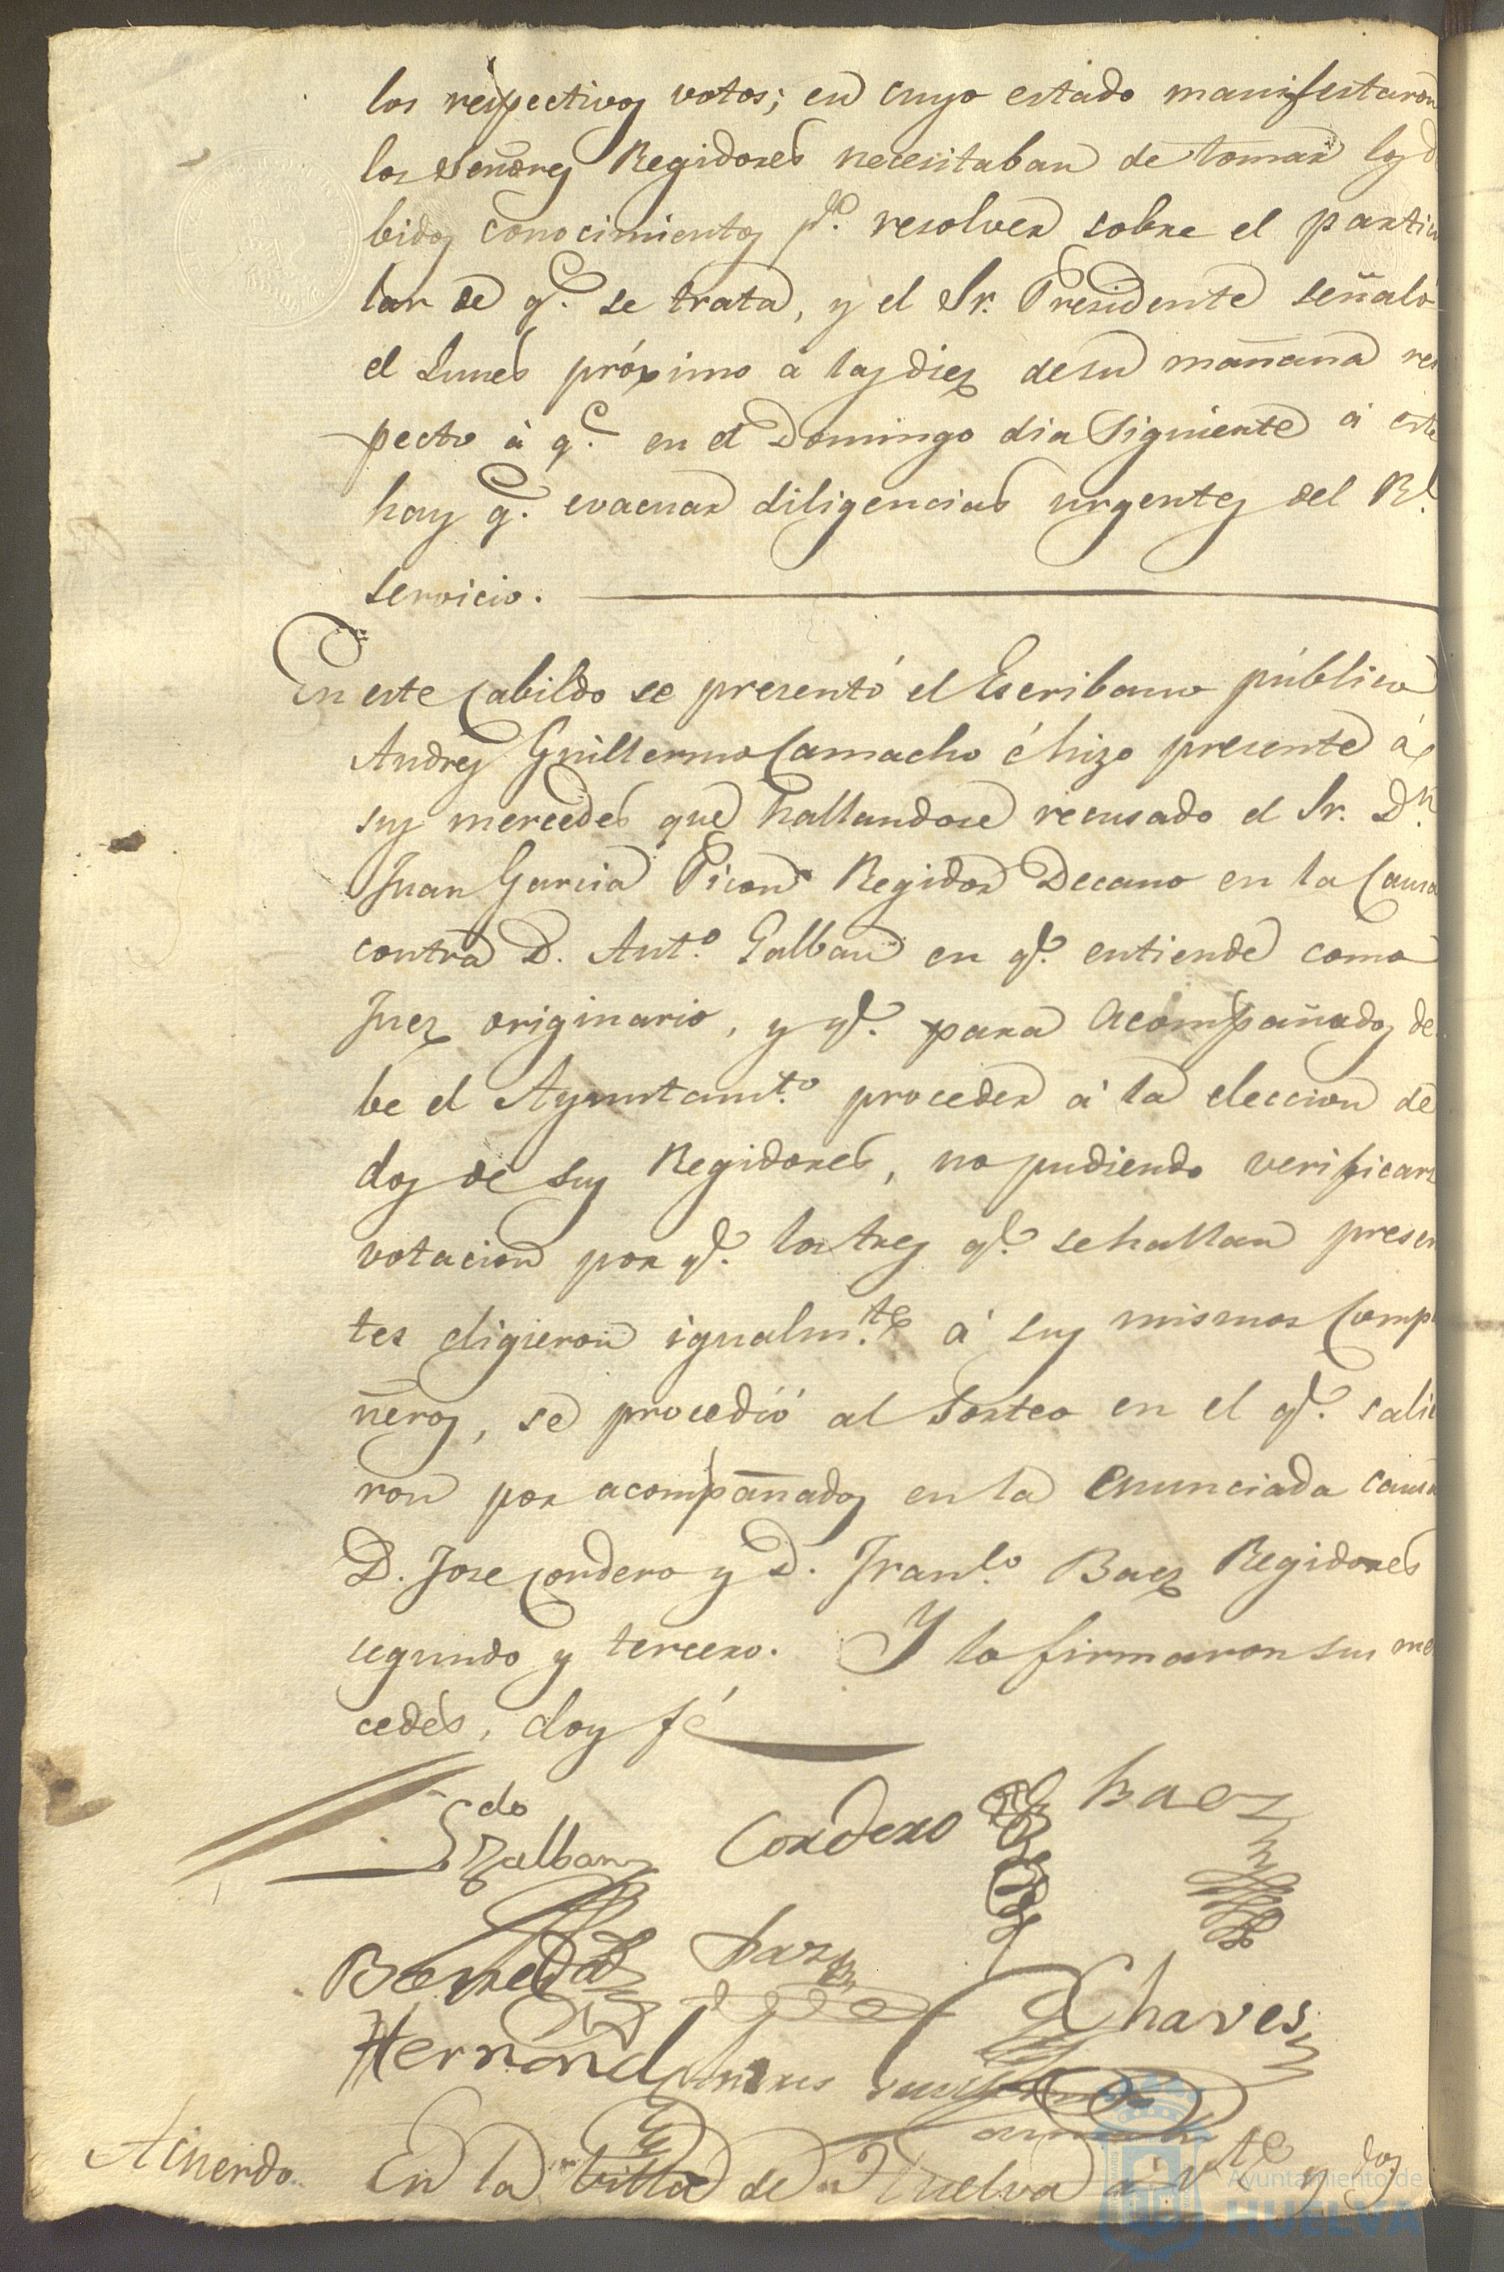 los respectivos votos; en cuyo estado manifestaron
los Señores Regidores necesitaban de tomar los d
bidos conocimientos p.a resolver sobre el particu
lar de q.e se trata, y el Sr. Presidente señaló
el Lunes próximo a las diez de su mañana res
pecto à q.e en el Domingo dia siguiente a este
hay q.e evacuar diligencias urgentes del R.l
servicio.
En este Cabildo se presentó el Escribano público
Andres Guillermo Camacho é hizo presente á
sus mercedes que hallandose recusado el Sr. D.n
Juan Garcia Picon Regidor Decano en la Causa
contra D. Ant.o Galban en q.e entiende como
Juez originario, y q.e para Acompañados de
be el Ayuntam.to proceder à la eleccion de
dos de sus Regidores, no pudiendo verificars
votacion por q.e los tres q.e se hallan presen
tes eligieron igualm.te á sus mismos Compa
ñeros, se procedió al Sorteo en el q.e salie
ron por acompañados en la enunciada causa
D. Jose Cordero y D. Fran.co Baez Regidores
segundo y tercero. Y lo firmaron sus mer
cedes, doy fé
Galban Cordero Baez
Chaves
Hernand
Acuerdo En la Villa de Huelva a v.te y dos
Ayuntamiento de
HUELVA